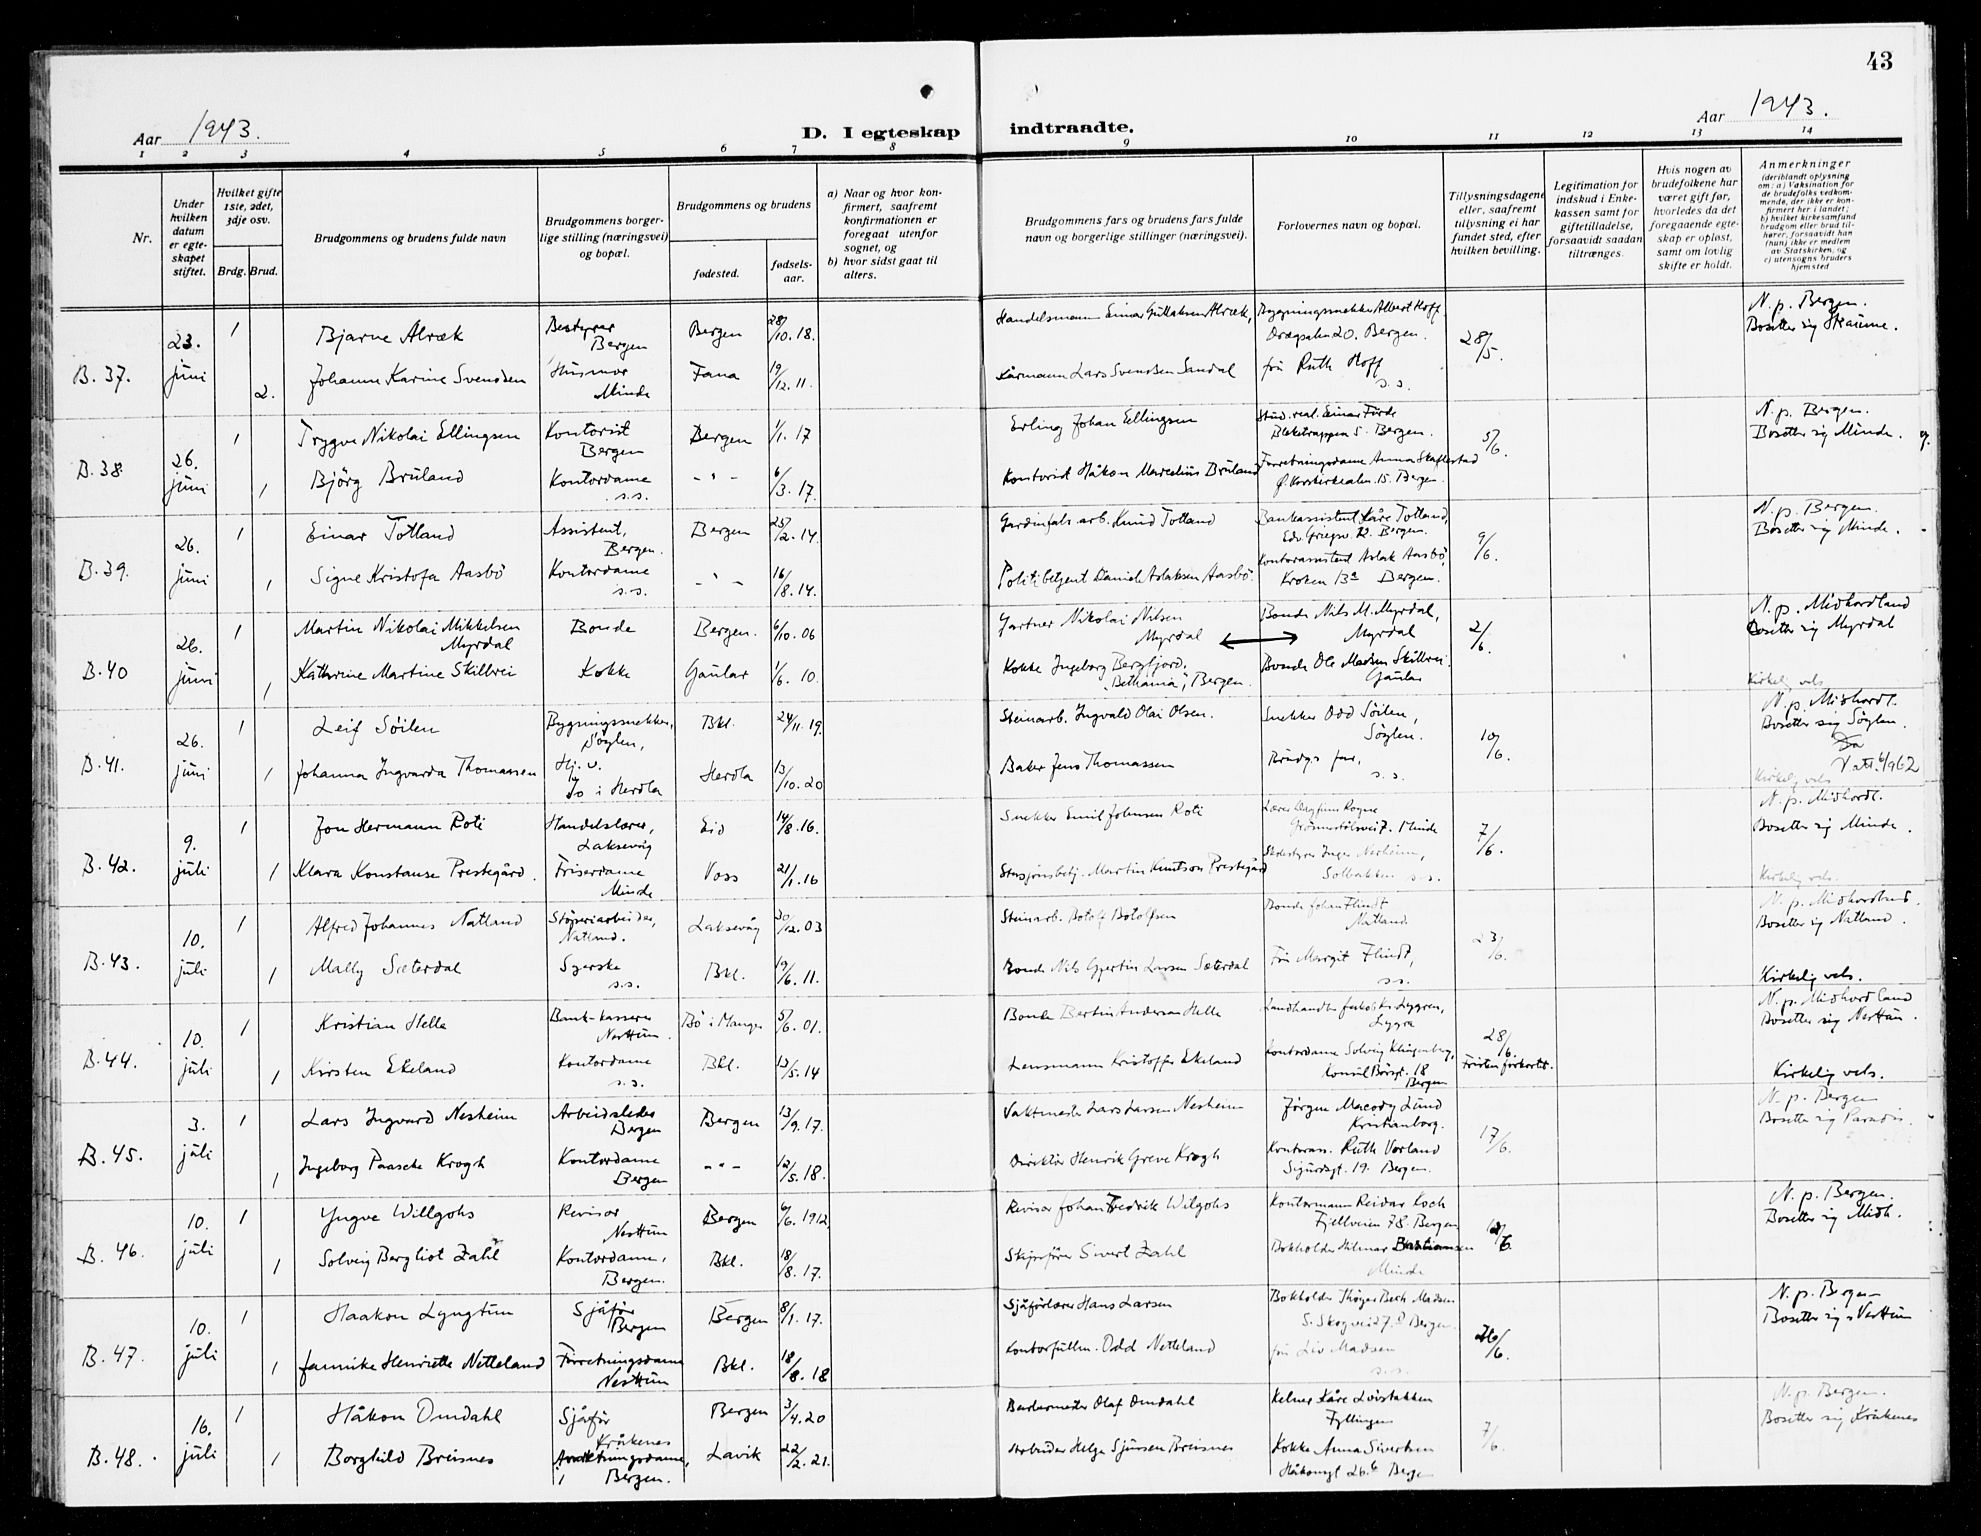 43
Aar 1943.
D. I egteskap indtraadte.
Aar 1943.
1 2 3 4 5 6 7 8 9 10 11 12 13 14
Nr.
Under hvilken datum er egteskapet stiftet.
Hvilket gifte 1ste, 2det, 3dje osv.
Brdg. Brud.
Brudgommens og brudens fulde navn
Brudgommens borgerlige stilling (næringsvei) og bopæl.
Brudgommens og brudens
fødested.
fødselsaar.
a) Naar og hvor konfirmert, saafremt konfirmationen er foregaat utenfor sognet, og
b) hvor sidst gaat til alters.
Brudgommens fars og brudens fars fulde navn og borgerlige stillinger (næringsvei).
Forlovernes navn og bopæl.
Tillysningsdagene eller, saafremt tillysning ei har fundet sted, efter hvilken bevilling.
Legitimation for indskud i Enkekassen samt for giftetilladelse, forsaavidt saadan tiltrænges.
Hvis nogen av brudefolkene har været gift før, hvorledes da det foregaaende egteskap er opløst, samt om lovlig skifte er holdt.
Anmerkninger
(deriblandt oplysning om: a) Vaksination for de brudefolks vedkommende, der ikke er konfirmert her i landet;
b) hvilket kirkesamfund brudgom eller brud tilhører, forsaavidt han (hun) ikke er medlem av Statskirken, og
c) utensogns bruders hjemsted
B. 37. 23. juni
1 Bjarne Alræk Bestyrer Bergen Bergen 28/10. 18. Handelsmann Einar Alræk, Bygningssnekker Albert Hoff 20. Bergen. 28/5. N. p. Bergen. Bosetter sig
2. Johanne Karine Svendsen Husmor Minde Fana 19/12. 11. Kårmann Lars Svendsen Sandal frü Ruth Hoff s.s.
B. 38 26. juni
1 Trygve Nikolai Ellingsen Kontorist Bergen Bergen 1/1. 17 Erling Johan Ellingsen Stud. real. Einar Förde Bleketrappen 5. Bergen. 5/6. N. p. Bergen. Bosetter sig Minde.
1 Björg Brüland Kontordame s.s. - " - 6/3. 17. Kontorist Håkon Marcelius Brüland Forretningsdame Anna Skaftestad Ø. Korskirkealm. 15. Bergen.
B. 39. 26. juni
1 Einar Totland Assistent, Bergen. Bergen 25/2. 14. Gardinfabr. arb. Knud Totland Bankassistent Kåre Totland, Edv. Griegsv. 12. Bergen. 9/6. N. p. Bergen. Bosetter sig Minde.
1 Signe Kristofa Aasbö Kontordame s.s. - " - 16/8. 14. Politibetjent Daniel Aslaksen Aasbö. Kontorassistent Aslak Aasbö, Kroken 13a Bergen.
B. 40 26. juni
1 Martin Nikolai Mikkelsen Myrdal Bonde Bergen. 6/10. 06 Gartner Nikolai Nilsen Myrdal Bonde Nils M. Myrdal, Myrdal 2/6. N. p. Midhordland Bosetter sig Myrdal
1 Kathrine Martine Skillrei Kokke Gaular 1/6. 10. Kokke Ingeborg Bergfjord. "Bethania", Bergen. Bonde Ole Madsen Skilbrei. Gaular Kirkelig vels.
B. 41. 26. juni
1 Leif Söilen Bygningssnekker, Söylen, Bkl. 24/11. 19. Steinarb. Ingvald Olai Olsen. Snekker Odd Söilen, Söylen. 10/6. N. p. Midhordl. Bosetter sig Söylen.
1 Johanna Ingvarda Thomassen Hj. v. i Herdla Herdla 13/10. 20 Baker Jens Thomassen Brüdgs far, s.s. Kirkelig vels
B. 42. 9. juli
1 Jon Hermann Roti Handelslærer, Laksevåg Eid 14/8. 16. Snekker Emil Johnsen Roti Lærer Dagfinn Rogne Minde 7/6. N. p. Midhordl. Bosetter sig Minde.
1 Klara Konstanse Prestegård. Friserdame Minde Voss 21/1. 16 Stasjonsbetj. Martin Knutson Prestegård Inger Nesheim, Solbakken s.s. Kirkelig vels.
B. 43. 10. juli
1 Alfred Johannes Natland Støperiarbeider, Natland. Laksevåg 30/12. 03 Steinarb. Botolf Botolfsen Bonde Johan Flindt Natland. 23/6. N. p. Midhordland. Bosetter sig Natland.
1 Mally Sæterdal Syerske s.s. Bkl. 19/6. 11. Bonde Nils Gjertin Larsen Sæterdal Frü Margit Flindt, s.s. Kirkelig vels.
B. 44. 10. juli
1 Kristian Helle Bank-kasserer Nesttün. Bö i Manger 5/6. 01. Bonde Bertin Andersen Helle Landhandler Jakob Lyggren, Lygra 28/6. Fristen forkortet. N. p. Midhordland Bosetter sig Nesttün.
1 Kirsten Ekeland Kontordame s.s. Bkl. 13/5. 14 Lensmann Kristoffer Ekeland Kontordame Solveig Klingenberg, Konsul Börsgt. 18 Bergen Kirkelig vels.
B. 45. 3. juli
1 Lars Ingvard Nesheim Arbeidsleder Bergen Bergen 13/9. 17. Vaktmester Lars Larsen Nesheim Jörgen Macody Lund Kristianborg. 17/6. N. p. Bergen Bosetter sig Paradis.
1 Ingeborg Paasche Krogh Kontordame Bergen - " - 12/5. 18. Direktör Henrik Greve Krogh Kontorass. Ruth Vorland Sigurdsgt. 19. Bergen.
B. 46. 10. juli
1 Yngve Willgohs Revisor Nesttün Bergen 6/6. 1912. Revisor Johan Fredrik Wilgohs Kontormann Reidar Koch Fjellveien 78. Bergen N. p. Bergen. Bosetter sig Midh.
1 Solveig Bergliot Zahl Kontordame, Bergen. Bkl. 18/8. 17. Skipsförer Sivert Zahl Bokholder Hilmar Bastiansen Minde
B. 47. 10. juli
1 Haakon Lyngtün Sjåför Bergen Bergen 8/1. 17. Sjåförlærer Hans Larsen Bokholder Thöger Bech Madsen S. Skogvei Bergen. 26/6. N. p. Bergen Bosetter sig Nesttün
1 Jannike Henriette Netteland Forretningsdame Nesttün Bkl. 18/8. 18 Kontorfullm. Odd Netteland frü Liv Madsen s.s.
B. 48. 16. juli
1 Håkon Omdahl Sjåför Kråkenes Bergen 3/4. 20 Olaf Omdahl Kelner Kåre Lövstakken Fyllingen 7/6. N. p. Bergen. Bosetter sig Kråkenes
1 Borghild Breisnes Forretningsdame, Bergen. Lavik 22/2. 21. Arbeider Helge Sjursen Breisnes Kokke Anna Sivertsen Håkonsgt 26.b Bergen